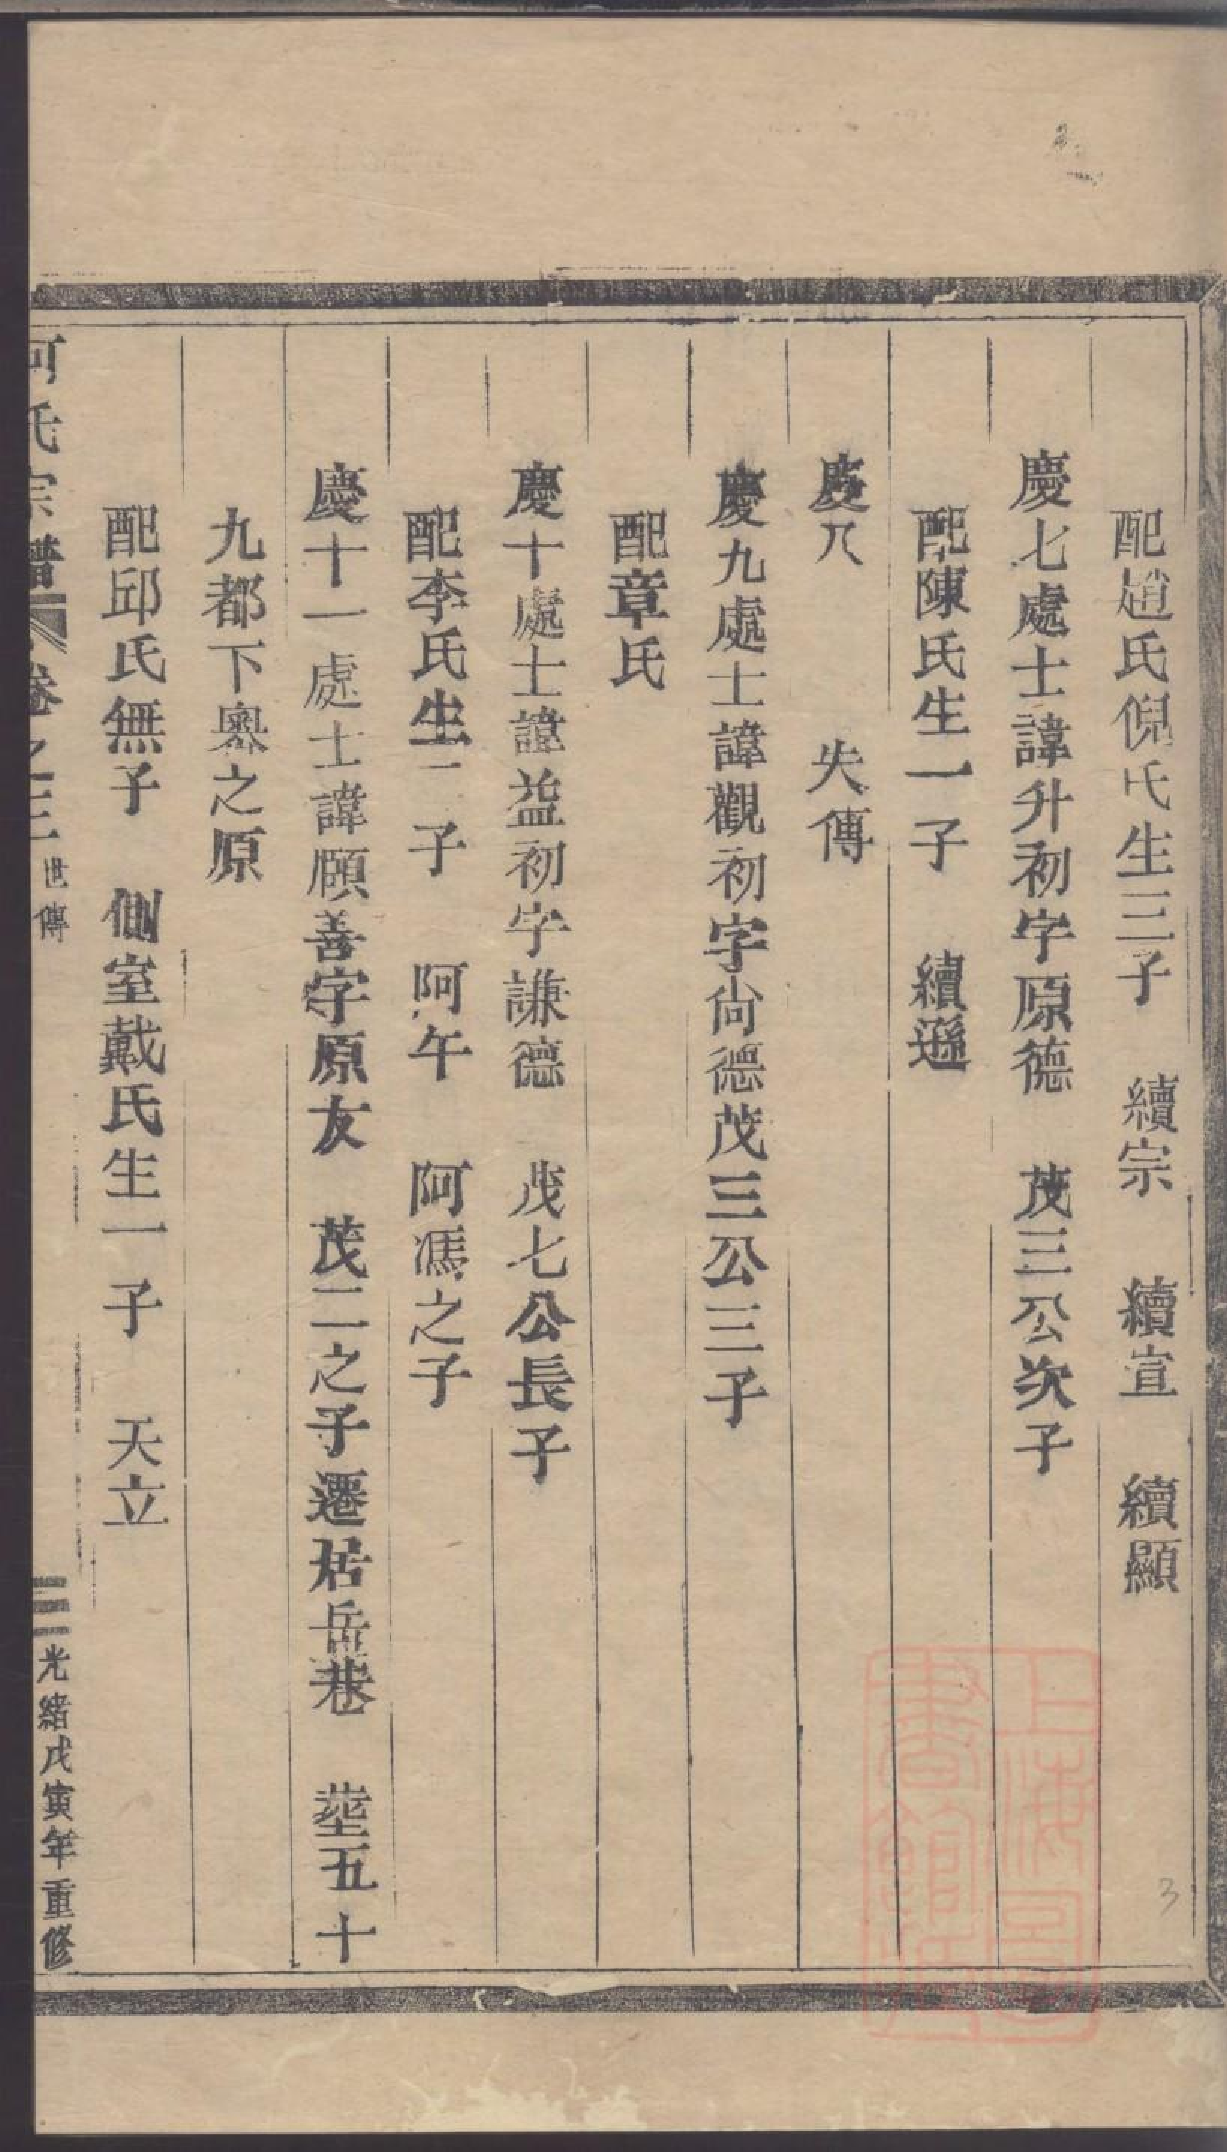 配趙氏倪氏生三子 續宗 續宣 續顯
慶七處士諱升初字原德 茂三公次子
配陳氏生一子 續遜
慶八 失傳
慶九處士諱觀初字尚德茂三公三子
配章氏
慶十處士諱益初字謙德 茂七公長子
配李氏生二子 阿午 阿馮之子
慶十一處士諱願善字原友 茂二之子遷居岳巷 塟五十
九都下奧之原
配邱氏無子 側室戴氏生一子 天立
氏宗譜 卷之三 世傳 三 光緒戊寅年重修
上海圖書館藏
3